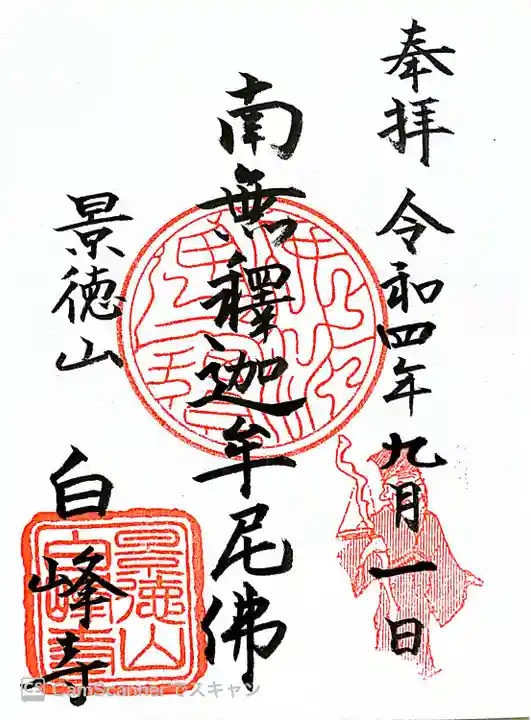 奉拝 令和四年九月一日
南無釋迦牟尼佛
景徳山
白峰寺
景徳山
白峰寺
CamScannerでスキャン